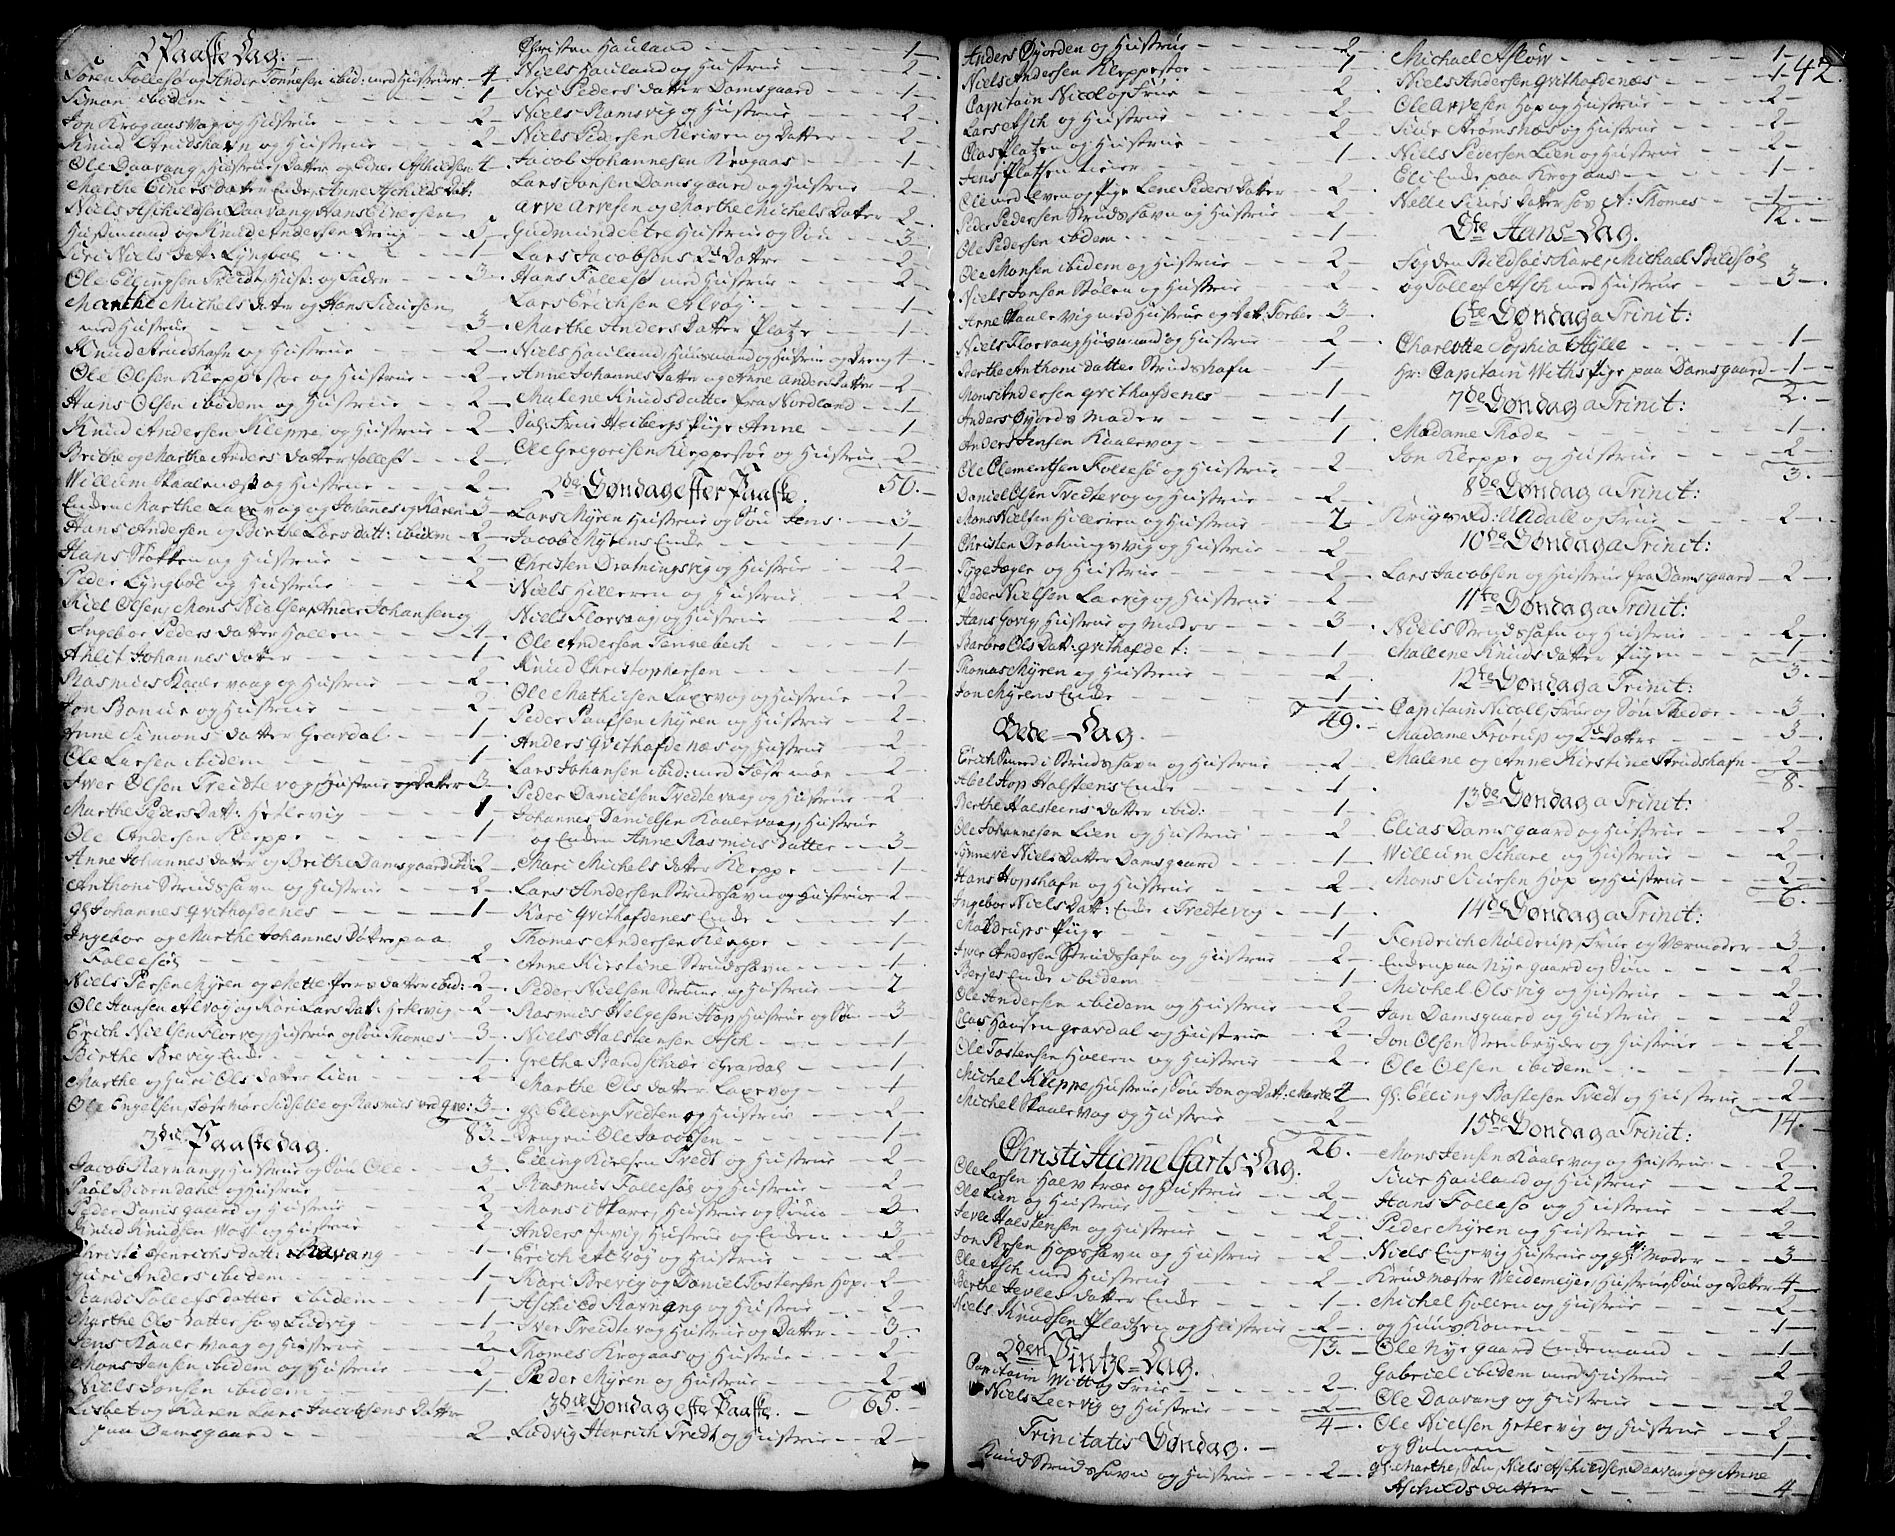 2 Paaske Dag.
Sören Follesø og Ander Tönnesen ibid: med Hustruer 4
Simon ibidem 1
Jon Krogaasvaag og Hustrue 2
Knud Strudshavn og Hustrue 2
Ole Daavang, Hustrue, Datter og Einer Aschildsen 4
Marthe Einers datter Encke, Anne Aschilds dat:
Niels Aschildsen Daavang Hans Einersen
Huusmand og Knud Andersen Dreng
Siri Niels Dat: Lyngböe 1
Ole Ellingsen Tredt, Hust: og Fader 3
Marthe Michels dater og Hans Siursen
med Hustrue 3
Knud Strudshafn og Hustrue 2
Ole Olsen Kleppestøe og Hustrue 2
Hans Olsen ibidem og Hustrue 2
Knud Andersen Kleppe, og Hustrue 2
Brithe og Marthe Anders datter Follesø 2
Willum Skaalenæs og Hustrue 2
Enken Marthe Laxevog og Johanes og Karen 3
Hans Andersen og Birthe Lars datt: ibidem 2
Hans Støkken og Hustrue 2
Peder Lyngböe og Hustrue 2
Kiel Olsen, Mons Nielsen, Ander Johansen og
Ingebor Peders datter Holleen 4
Ahlit Johannes datter 1
Rasmus Skaalevaag og Hustrue 2
Jon Bonue og Hustrue 2
Anne Simons datter Geardal 1
Ole Larsen ibidem 1
Iwer Olsen Treidtevog Hustrue og Datter 3
Marthe Peders Dat: Hetlevig 1
Ole Andersen Kleppe 1
Anne Johannes datter og Brithe Damsgaard 2
Anthoni Strudshavn og Hustrue 2
gl: Johannes Gvithofdenes 1
Ingebor og Marthe Johannes Døtre paa
Follesøe 2
Niels Persen Myren og Mette Pers datter ibid: 2
Ole Hansen Alvog og Kari Lars Dat: Hetlevig 2
Erich Nielsen Florvog Hustrue og Søn Thomes 3
Birthe Brevig Enke 1
Marthe og Guri Ols datter Lien 2
Ole Engelsen, Festemøe Sidselie og Rasmus 3
83.
3die Paaskedag.
Jacob Ravnang, Hustrue og Søn Ole 3
Paal Biørndahl og Hustrue 2
Peder Damsgaard og Hustrue 2
Knud Knudsen Woss og Hustrue 2
Christi Henrichs datt: Ravnang 1
Guri Anders ibidem 1
Randi Tollefs datter ibidem 1
Marthe Ols datter hos Ludvig 1
Jens Kaalevaag og Hustrue 2
Mons Jensen ibidem og Hustrue 2
Niels Jonsen ibidem 1
Lisbet og Karen Lars Jacobsens Døtter
paa Damsgaard 2
Christen Hauland 1
Niels Hauland og Hustrue 2
Siri Peders datter Damsgaard 1
Niels Ramsvig og Hustrue 2
Niels Pedersen Kleiven og Datter 2
Jacob Johannesen Krogaas 1
Lars Jonsen Damsgaard og Hustrue 2
Arve Arvesen og Marthe Michels Datter 2
Gudmund Setre Hustrue og Søn 3
Lars Jacobsøns 2de Døttre 2
Hans Follesø med Hustrue 2
Lars Erichsen Alvog 1
Marthe Anders Datter Platz 1
Niels Hauland, Huusmand og Hustrue og Dreng 4
Anne Johannes Datter og Anne Anders Datter 2
Malene Knuds datter fra Nordland 1
Sal: Frue Heibergs Piige Anne 1
Ole Gregorisen Kleppestøe og Hustrue 2
50.
2de Søndag efter Paaske.
Lars Myren Hustrue og Søn Jens 3
Jacob Myrens Enke 1
Christen Drotningsvig og Hustrue 2
Niels Hilleren og Hustrue 2
Niels Florvaag og Hustrue 2
Ole Andersen Tennebech 1
Knud Christophersen 1
Ole Mathisen Laxevog og Hustrue 2
Peder Paulsen Myren og Hustrue 2
Anders Gvithofdenæs og Hustrue 2
Lars Johansen ibid: med Fæstemøe 2
Peder Danielsen Tredtevaag og Hustrue 2
Johannes Danielsen Kaalevaag, Hustrue
og Enken Anne Rasmus datter 3
Mari Michels datter Kleppe 1
Lars Andersen Strudshavn og Hustrue 2
Kari Gvithofdenes Enke 1
Thomes Andersen Kleppe 1
Anne Kirstine Strudshavn 1
Peder Nielsen Strømme og Hustrue 2
Rasmus Helgesen Hop, Hustrue og Søn 3
Niels Halsteensen Asch 1
Grethe Bandschiær Geardal 1
Marthe Ols datter Laxevog 1
gl: Elling Tredten og Hustrue 2
Drengen Ole Jacobsen 1
Elling Kielsen Tredt og Hustrue 2
Rasmus Follesøe og Hustrue 2
Mons i Skare, Hustrue og Sviin 3
Anders Govig, Hustrue og Enken 3
Erich Alvog og Hustrue 2
Kari Brevig og Daniel Tostensen Hop 2
Aschild Ravnang og Hustrue 2
Iver Treidtevog Hustrue og Datter 3
Thomes Krogaas og Hustrue 2
Peder Myren og Hustrue 2
65.
3die Søndag efter Paaske.
Ludvig Henrich Tredt og Hustrue 2
Anders Øyjorden og Hustrue 2
Niels Andersen Kleppestøe 1
Capitain Nicol og Frue 2
Lars Asch og Hustrue 2
Clas Platzen og Hustrue 2
Jens Platsen 1
Ole med Even og Pige Lene Peders Datter 2
Peder Pedersen Strudshavn og Hustrue 2
Ole Pedersen ibidem 1
Ole Monsen ibidem og Hustrue 2
Niels Jonsen Stølen og Hustrue 2
Arne Skaalevig med Hustrue og Dat: Torber 3
Niels Florvang Huusmand og Hustrue 2
Berthe Anthoni datter Strudshafn 1
Mons Andersen Gvithofdenes 1
Anders Øyjords Moder 1
Anders Jensen Kaalevog 1
Ole Clementsen Follesø og Hustrue 2
Daniel Olsen Tredtevog og Hustrue 2
Mons Nielsen Hilleren og Hustrue 2
Christen Drotningsvig og Hustrue 2
Tyge Jæger og Hustrue 2
Peder Nielsen Laxevig og Hustrue 2
Hans Govig, Hustrue og Moder 3
Barbro Ols Dat: Gvithofdet: 1
Thomas Myren og Hustrue 2
Jon Myrens Enke 1
49.
Bede-Dag.
Erich Smed i Strudshavn og Hustrue 2
Abel Hop Halsteens Enke 1
Berthe Halsteens datter ibid: 1
Ole Johannesen Lien og Hustrue 2
Synneve Niels datter Damsgaard 1
Hans Hopshafn og Hustrue 2
Ingebor Niels Dat: Enke i Tredtevog 1
Moldrups Piige 1
Iver Andersen Strudshafn og Hustrue 2
Berjes Enke ibidem 1
Ole Andersen ibidem og Hustrue 2
Clas Hansen Geardal og Hustrue 2
Ole Tostensen Holleen og Hustrue 2
Michel Kleppe, Hustrue, Søn Jon og Dat: Marte 4
Michel Skaalevog og Hustrue 2
26.
Christi Himmelfarts Dag.
Ole Larsen Halvtræe og Hustrue 2
Ole Lien og Hustrue 2
Tevle Halstensen og Hustrue 2
Jon Persen Hopshavn og Hustrue 2
Ole Asch med Hustrue 2
Berthe Tevles datter Enke 1
Niels Knudsen Pladtzen og Hustrue 2
13.
2den Pintze-Dag.
Capitain Witt og Frue 2
Niels Leervig og Hustrue 2
4
Trinitatis Søndag.
Knud Strudshavn og Hustrue 2
42.
Michael Asløw 1
Niels Andersen Gvithofdenæs 1
Ole Arvesen Hop og Hustrue 2
Siur Strømsnæs og Hustrue 2
Niels Pedersen Lien og Hustrue 2
Eli Enke paa Krogaas 1
Nelle Siurs datter hos A: Thomes 1
12.
Ste Hans-Dag.
Fogden Bildsøes Karl, Michael Bildsøe
og Tollef Asch med Hustrue 3
6te Søndag a Trinit:
Charlotte Sophia Hylle 1
Hr: Capitain With's Pige paa Damsgaard 1
2.
7de Søndag a Trinit:
Madame Thode 1
Jon Kleppe og Hustrue 2
3.
8de Søndag a Trinit:
Krigs R: Udall og Frue 2
10de Søndag a Trinit:
Lars Jacobsen og Hustrue fra Damsgaard 2
11te Søndag a Trinit:
Niels Strudshafn og Hustrue 2
Mallene Knuds datter Piigen 1
3.
12te Søndag a Trinit:
Capitain Nicoll, Frue og Søn Thedor 3
Madame Frørup og 2de Døttre 3
Malene og Anne Kirstine Strudshafn 2
8.
13de Søndag a Trinit:
Elias Damsgaard og Hustrue 2
Willum Schare og Hustrue 2
Mons Siursen Hop og Hustrue 2
6.
14de Søndag a Trinit:
Fendrich Moldrup, Frue og Værmoder 3
Enken paa Nyegaard og Søn 2
Michel Olsvig og Hustrue 2
Jan Damsgaard og Hustrue 2
Jon Olsen Steenbryder og Hustrue 2
Ole Olsen ibidem 1
gl: Elling Bastesen Tredt og Hustrue 2
14.
15de Søndag a Trinit:
Mons Jensen Kaalevog og Hustrue 2
Siur Hauland og Hustrue 2
Hans Follesø og Hustrue 2
Peder Myren og Hustrue 2
Niels Engevig Hustrue og gl: Moder 3
Krudmester Weidemeyer, Hustrue, Søn og Datter 4
Michel Holleen og Hustrue 2
og Huus Konen 1
Ole Nyegaard Enkemand 1
Gabriel ibidem med Hustrue 2
Ole Daavang og Hustrue 2
Ole Nielsen Hetlevig og Hustrue
og Sønnen 1
gl: Marthe, Søn, Niels Aschildsen Daavang og Anne
Aschilds datter 4